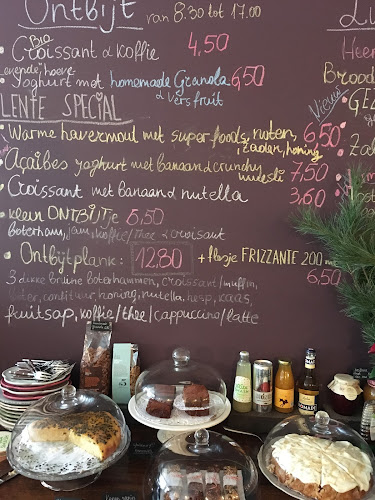 Ontbijt van 8.30 tot 17.00
Bio
Croissant & Koffie 4,50
Levende hoeve
Yoghurt met homemade Granola 6,50
& vers fruit
LENTE SPECIAL
Warme havermout met superfoods, noten, 6,50
zaden, honing
Açaibes yoghurt met banaan & crunchy 7,50
muesli
Croissant met banaan & nutella 3,60
Klein ONTBIJTje 8,50
boterham, jam, koffie/thee & croissant
Ontbijtplank: 1280 + flesje FRIZZANTE 200 ml
6,50
3 dikke bruine boterhammen, croissant/muffin,
boter, confituur, honing, nutella, hesp, kaas,
fruitsap, koffie/thee/cappuccino/latte
Lu
Heer
Brood
Nieuw
GEZ
Zo